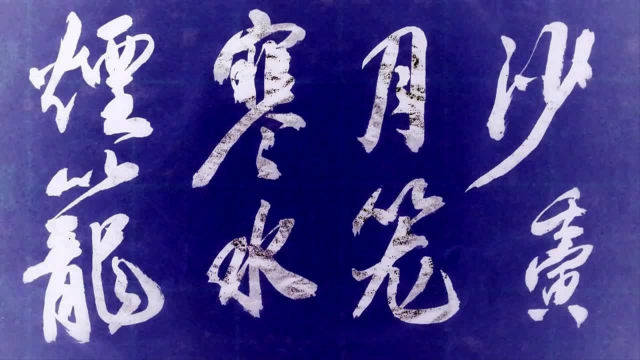 煙籠
寒水
月笼
沙